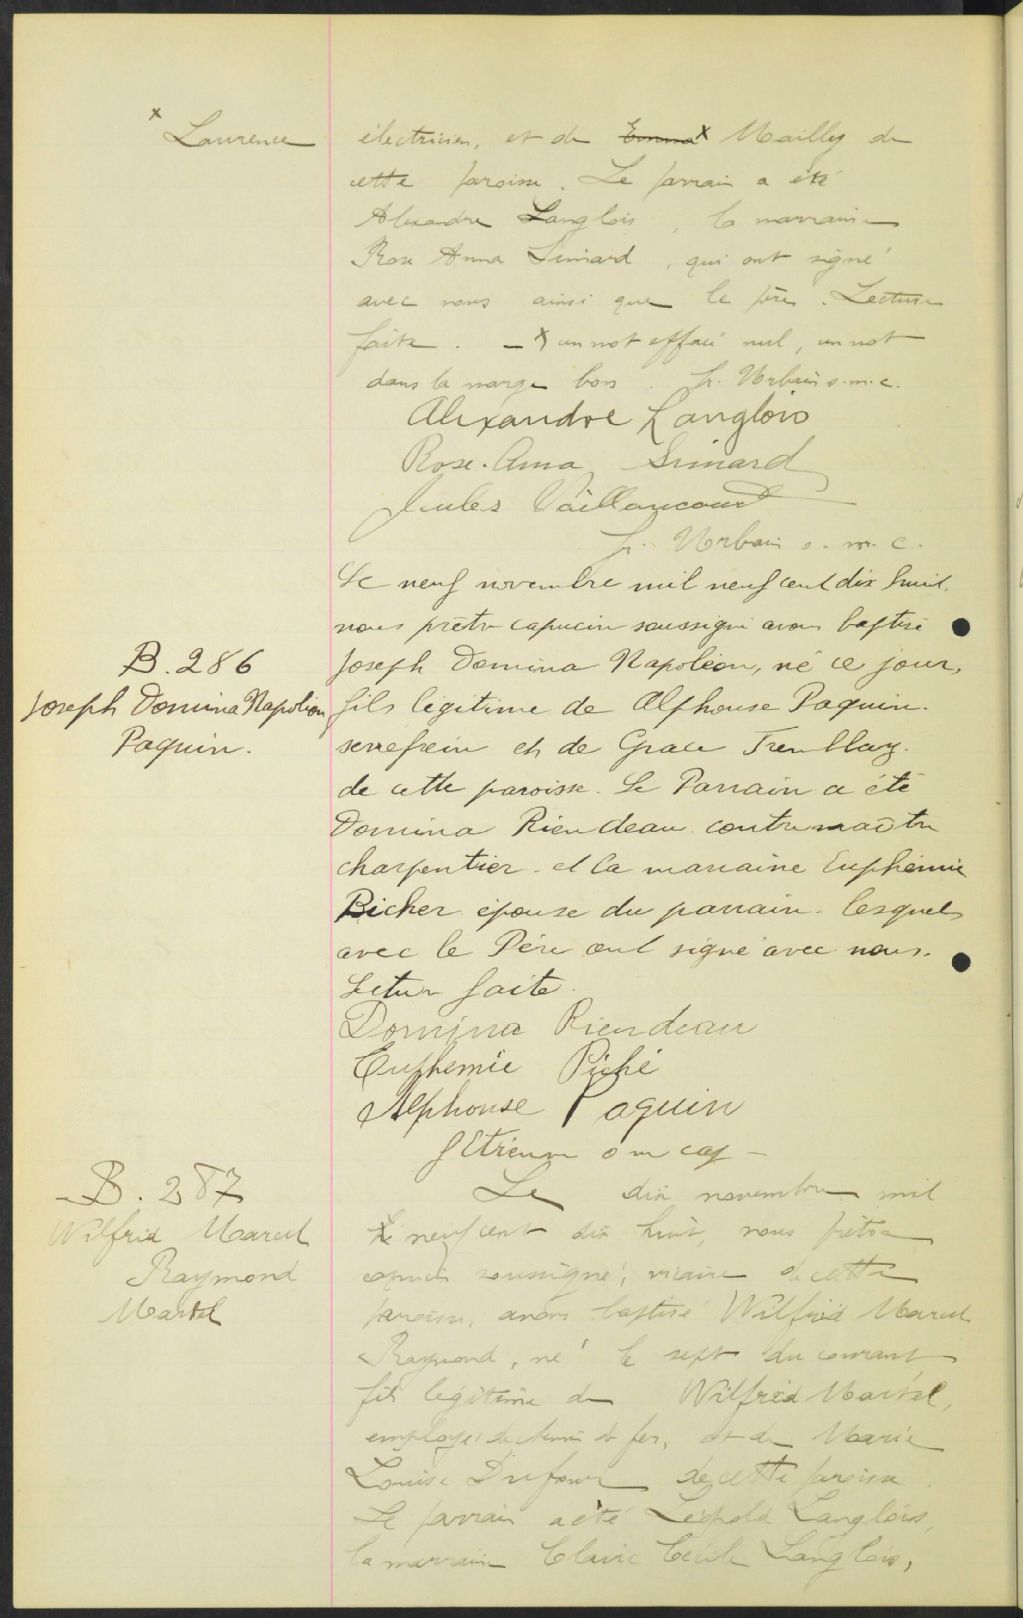 x Laurence
électricien, et de Emma x Mailly de
cette paroisse. Le parrain a été
Alexandre Langlois, la marraine
Rose Anna Simard, qui ont signé
avec nous ainsi que le père. Lecture
faite. – x un mot effacé nul, un mot
dans la marge bon. fr. Urbain o.m.c.
Alexandre Langlois
Rose-Anna Simard
Jules Vaillancourt
fr. Urbain o.m.c.
Le neuf novembre mil neuf cent dix huit.
nous prêtre capucin soussigné avons baptisé
B. 286
Joseph Domina Napoléon
Paquin.
Joseph Domina Napoléon, né ce jour,
fils légitime de Alphonse Paquin.
serrefrein et de Grace Tremblay.
de cette paroisse. Le Parrain a été
Domina Riendeau contremaître
charpentier. et la marraine Euphémie
Richer épouse du parrain. lesquels
avec le Père ont signé avec nous.
Lecture faite.
Domina Riendeau
Euphemie Piché
Alphonse Paquin
f Etienne o m cap –
B. 287
Wilfrid Marcel
Raymond
Martel
Le dix novembre mil
neuf cent dix huit, nous prêtre
capucin soussigné, vicaire de cette
paroisse, avons baptisé Wilfrid Marcel
Raymond, né le sept du courant
fils légitime de Wilfrid Martel,
employé de chemin de fer, et de Marie
Louise Dufour de cette paroisse.
Le parrain a été Léopold Langlois,
la marraine Claire Cécile Langlois,